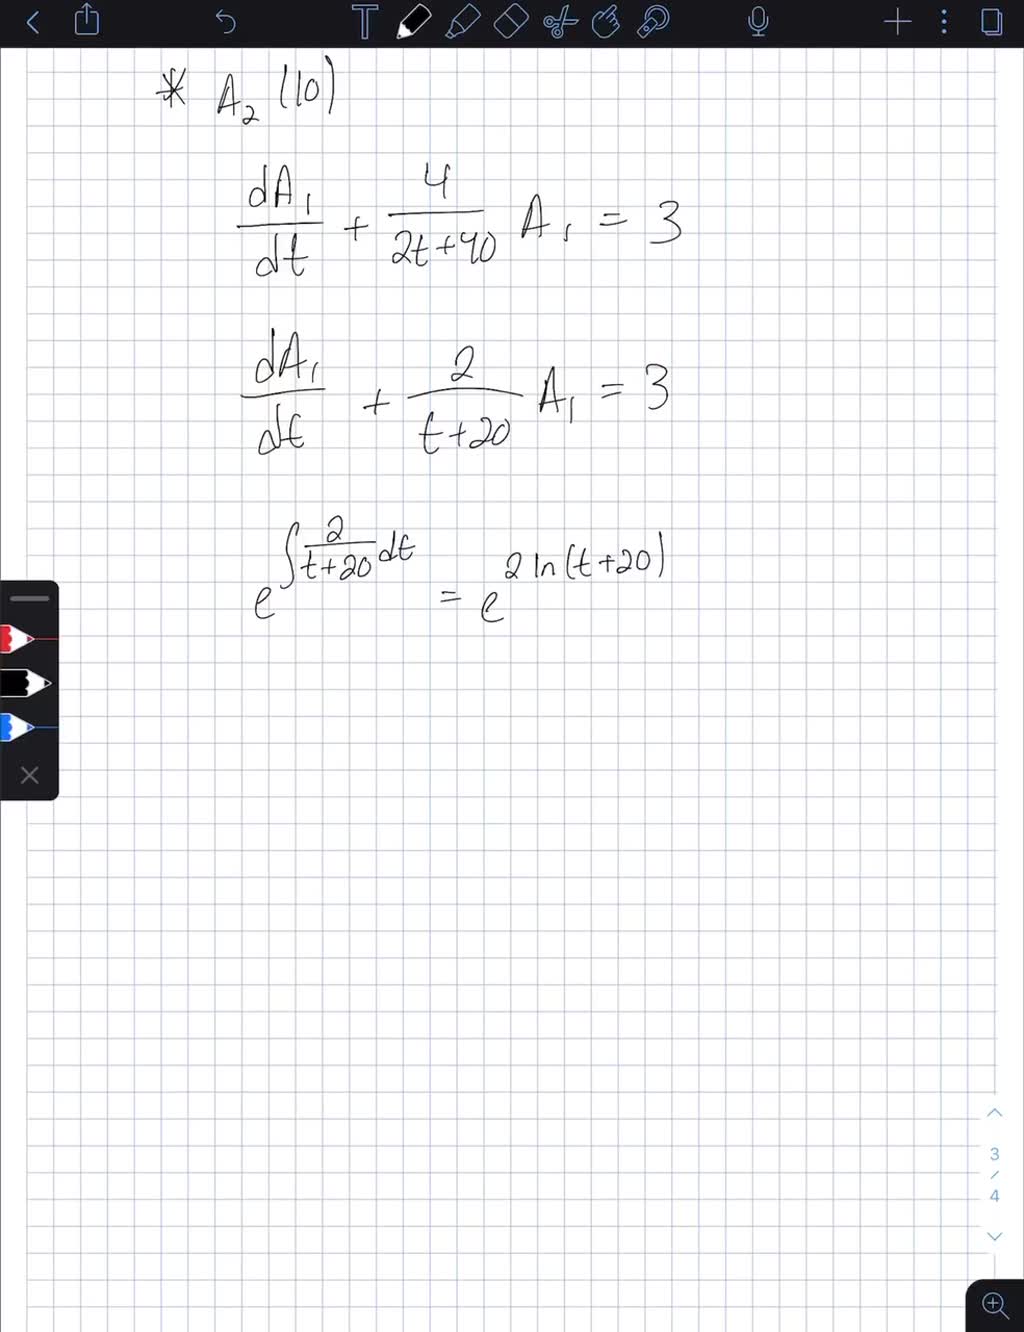 * A₂ (10)
dA₁/dt + 4/(2t+40) A₁ = 3
dA₁/dt + 2/(t+20) A₁ = 3
e^(∫ 2/(t+20) dt) = e^(2 ln(t+20))
3
/
4